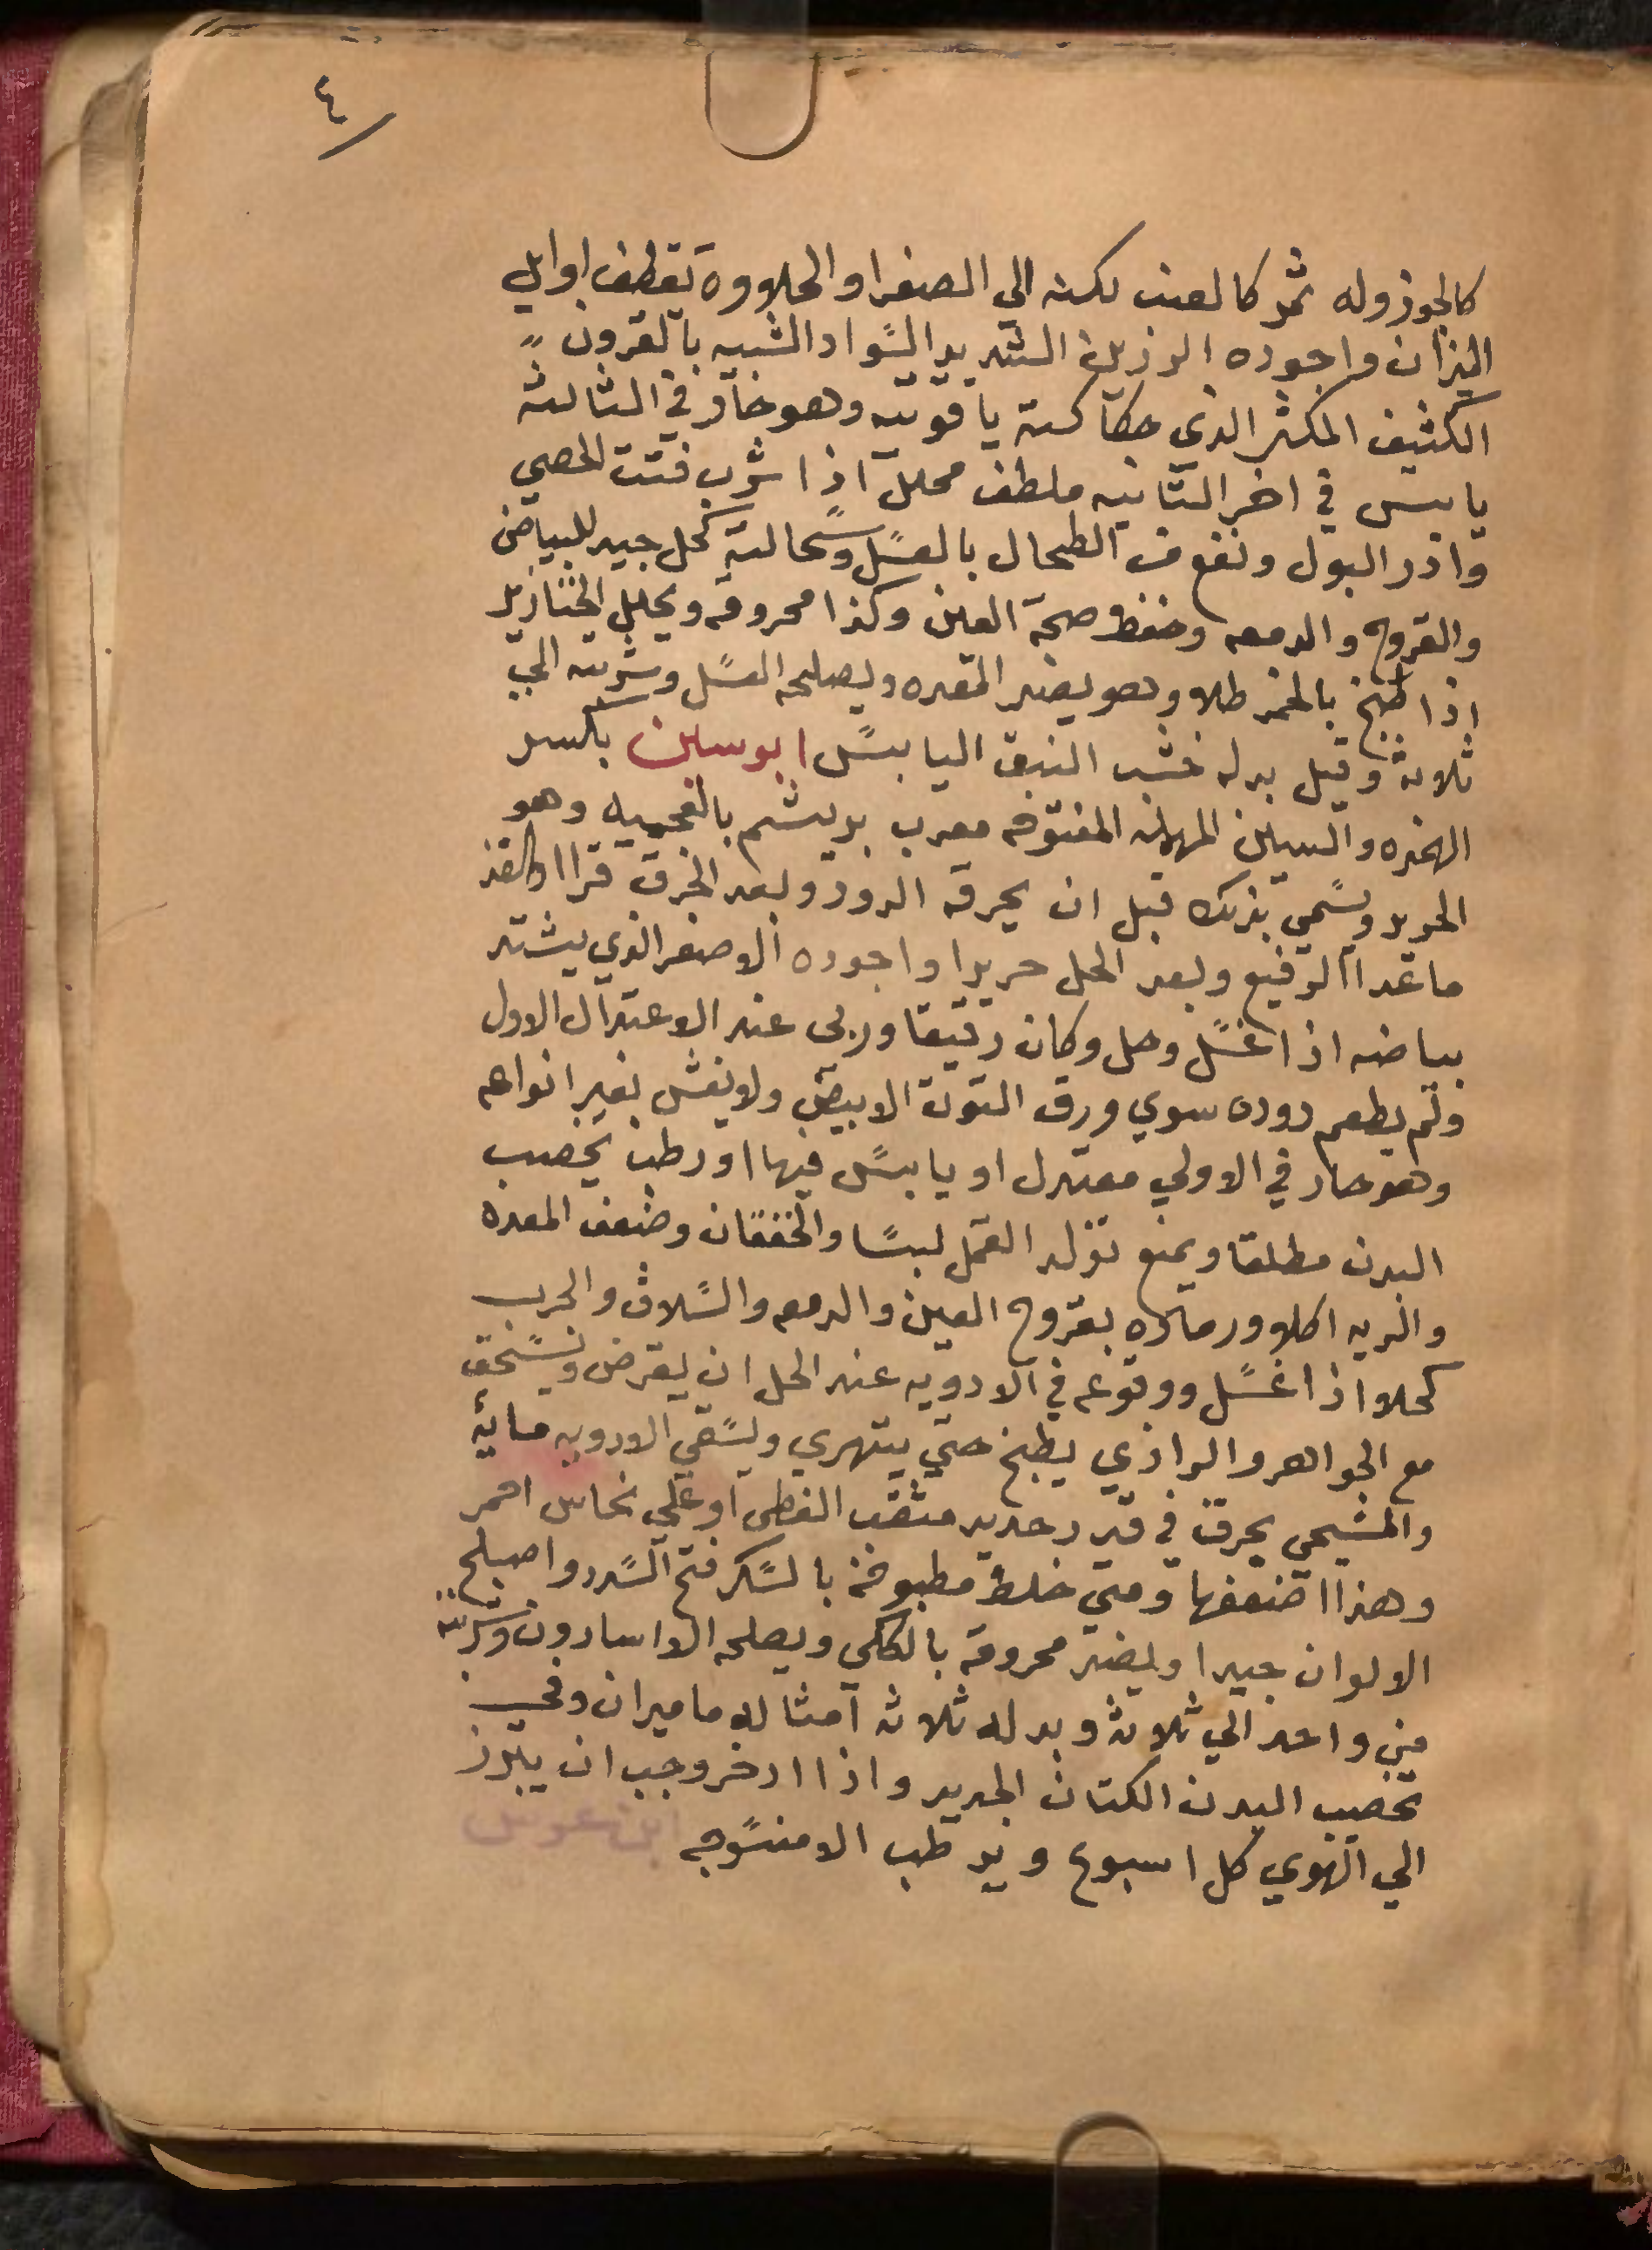 ٤
كالجوز وله ثمر كالعنب لكنه الي الصفرا والحلاوه تقطف اوايل
الميزان واجوده الرزين الشديد السواد الشبيه بالقرون
الكثيف المكثر الذي حكاكته ياقوتيه وهو حار في الثالثه
يابس في اخر الثانيه ملطف محلل اذا شرب فتت الحصي
وادر البول ونفع من الطحال بالعسل وسحالته كحل جيد للبياض
والقروح والدمعه وحفظ صحة العين وكذا محروقه ويحلل الخنازير
اذا طبخ بالخمر طلا وهو يضر المقعده ويصلحه العسل وشربته الي
ثلاثة وقيل بدله خشب النبق اليابس ابوسين بكسر
الهمزه والسين المهمله المفتوحه معرب بريشم بالعجميه وهو
الحرير ويسمي بذلك قبل ان يخرقه الدود وبعد الخرق قزا او القز
ما عدا الرفيع وبعد الحل حريرا واجوده الاصفر الذي يشتد
بياضه اذا غسل وحل وكان رقيقا وربى عند الاعتدال الاول
ولم يطعم دوده سوي ورق التوت الابيض ولا يغش بغير انواعه
وهو حار في الاولي معتدل او يابس فيها او رطب يخصب
البدن مطلقا ويمنع تولد القمل لبسا والخفقان وضعف المعده
والريه اكلا ورماده بقروح العين والدمعه والسلاق والجرب
كحلا اذا غسل ووقوعه في الادويه عند الحل ان يقرض ويسحق
مع الجواهر والرازي يطبخ حتي يتهري ويسقي الادويه مايه
والمسيحي يحرق في قدر حديد مثقب الغطى او علي نحاس احمر
وهذا اضعفها ومتي خلط مطبوخه بالسكر فتح السدد واصلح
الالوان جيدا ويضر محروقه بالكلي ويصلحه الاسارون وشربته
من واحد الي ثلاثة وبدله ثلاثه امثاله ماميران وفي
تخصيب البدن الكتان الجديد واذا ادخر وجب ان يبرز
الي الهوي كل اسبوع ويرطب الا منسوجه ابن عرس